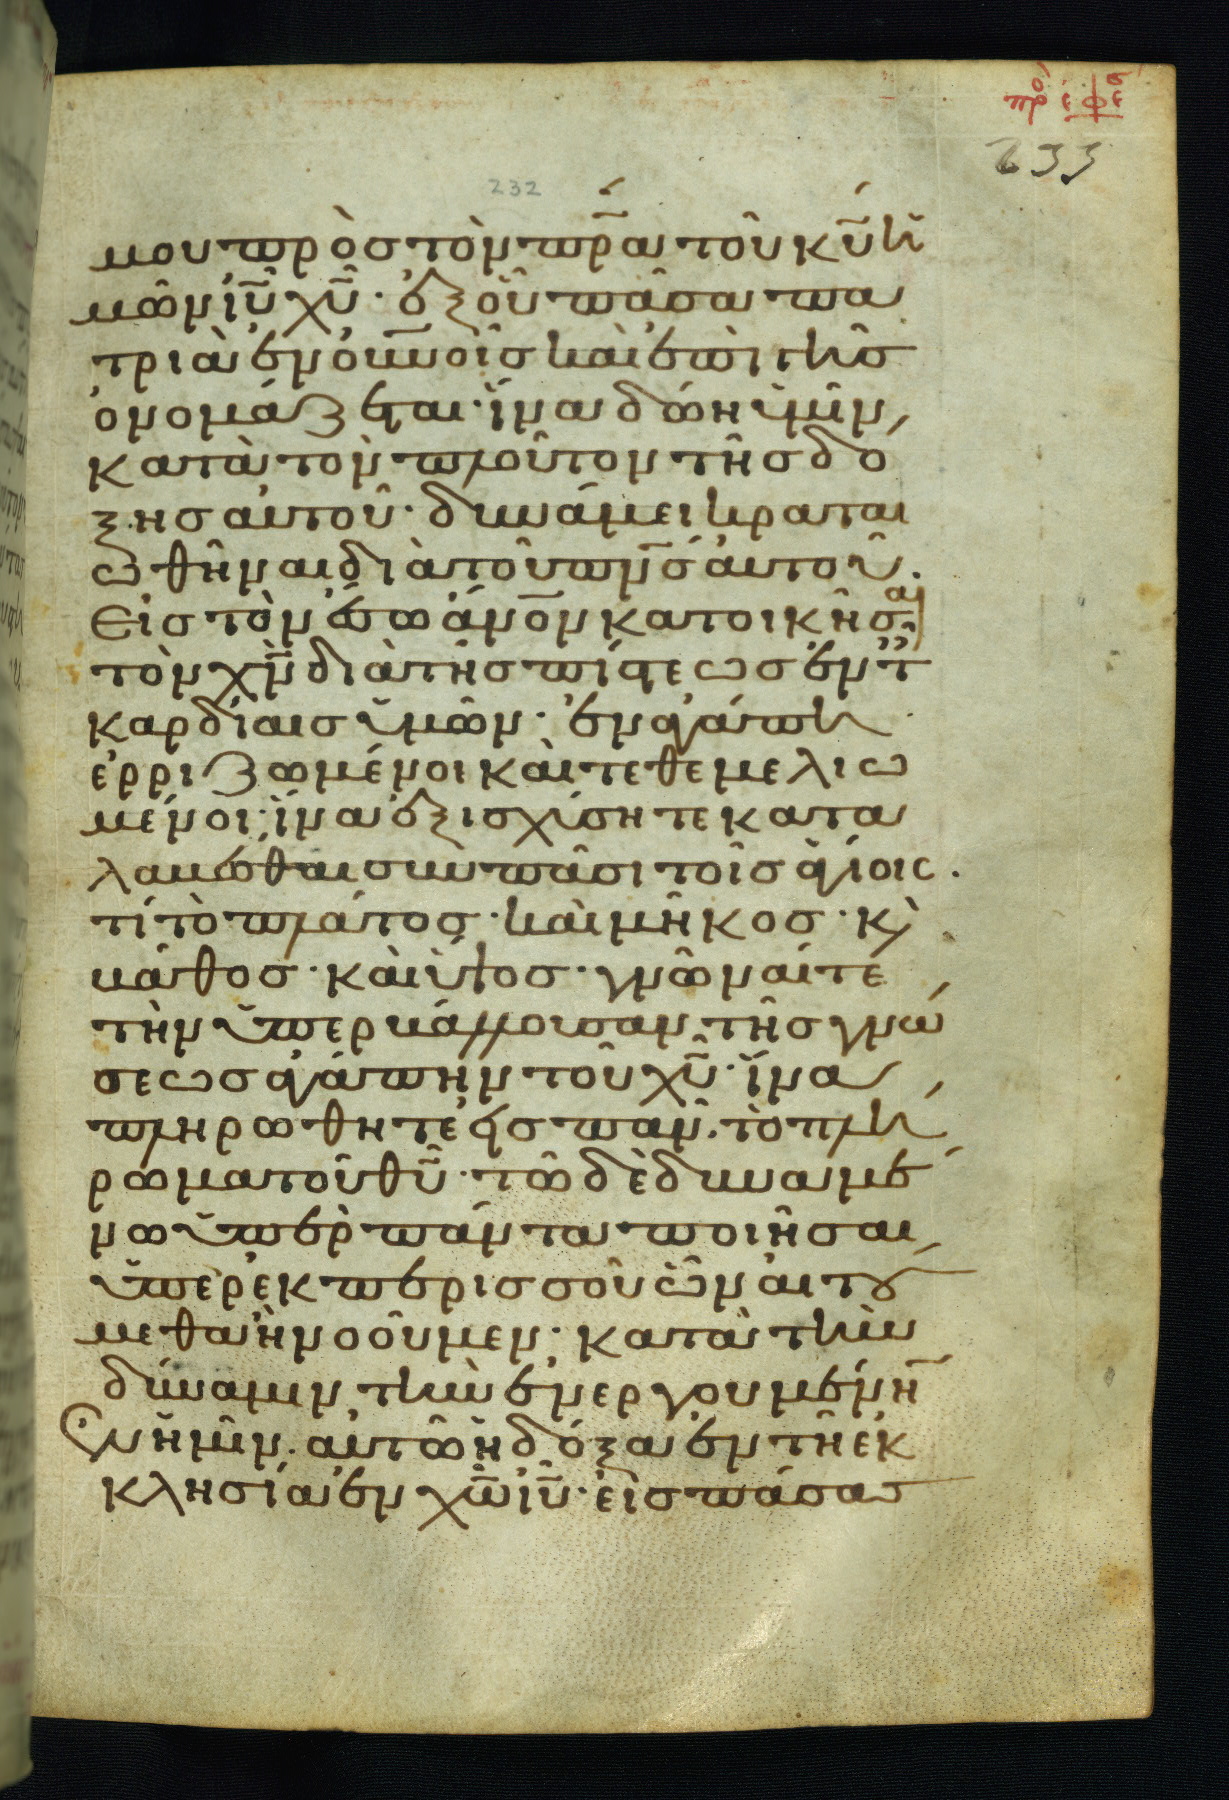 πρὸ ἐφε
233
232
μου πρὸς τὸν πρ̅α τοῦ κ̅υ ἡ
μῶν ἰ̅υ̅ χ̅υ̅· ἐξ οὗ πᾶσα πα
τριὰ ἐν ο̅υ̅νοῖς καὶ ἐπὶ γῆς
ὀνομάζεται· ἵνα δώη ὑμῖν,
κατὰ τὸν πλοῦτον τῆς δό
ξης αὐτοῦ· δυνάμει κραται
ωθῆναι διὰ τοῦ π̅ν̅ς αὐτοῦ.
Εἰς τὸν ἔσω ἄ̅νον κατοικῆσαι
τὸν χ̅ν̅ διὰ τῆς πίστεως ἐν τ
καρδίαις ὑμῶν· ἐν ἀγάπη
ἐρριζωμένοι καὶ τεθεμελιω
μένοι· ἵνα ἐξισχύσητε κατα
λαβέσθαι σὺν πᾶσι τοῖς ἁγίοις.
τί τὸ πλάτος· καὶ μῆκος· κ
βάθος· καὶ ὕψος· γνῶναί τε
τὴν ὑπερβάλλουσαν τῆς γνώ
σεως ἀγάπην τοῦ χ̅υ̅· ἵνα
πληρωθητε εἰς πᾶν. τὸ πλή
ρωμα τοῦ θ̅υ̅· τῶ δὲ δυναμέ
νω ὑπὲρ πάντα ποιῆσαι,
ὑπὲρ ἐκ περισσοῦ ὧν αἰτού
μεθα ἢ νοοῦμεν· κατὰ τὴν
δύναμιν τὴν ἐνεργουμένη̅
ἐν ἡμῖν. αὐτῶ ἡ δόξα ἐν τῆ ἐκ
κλησία ἐν χ̅ω̅ ἰ̅υ̅· εἰς πάσας